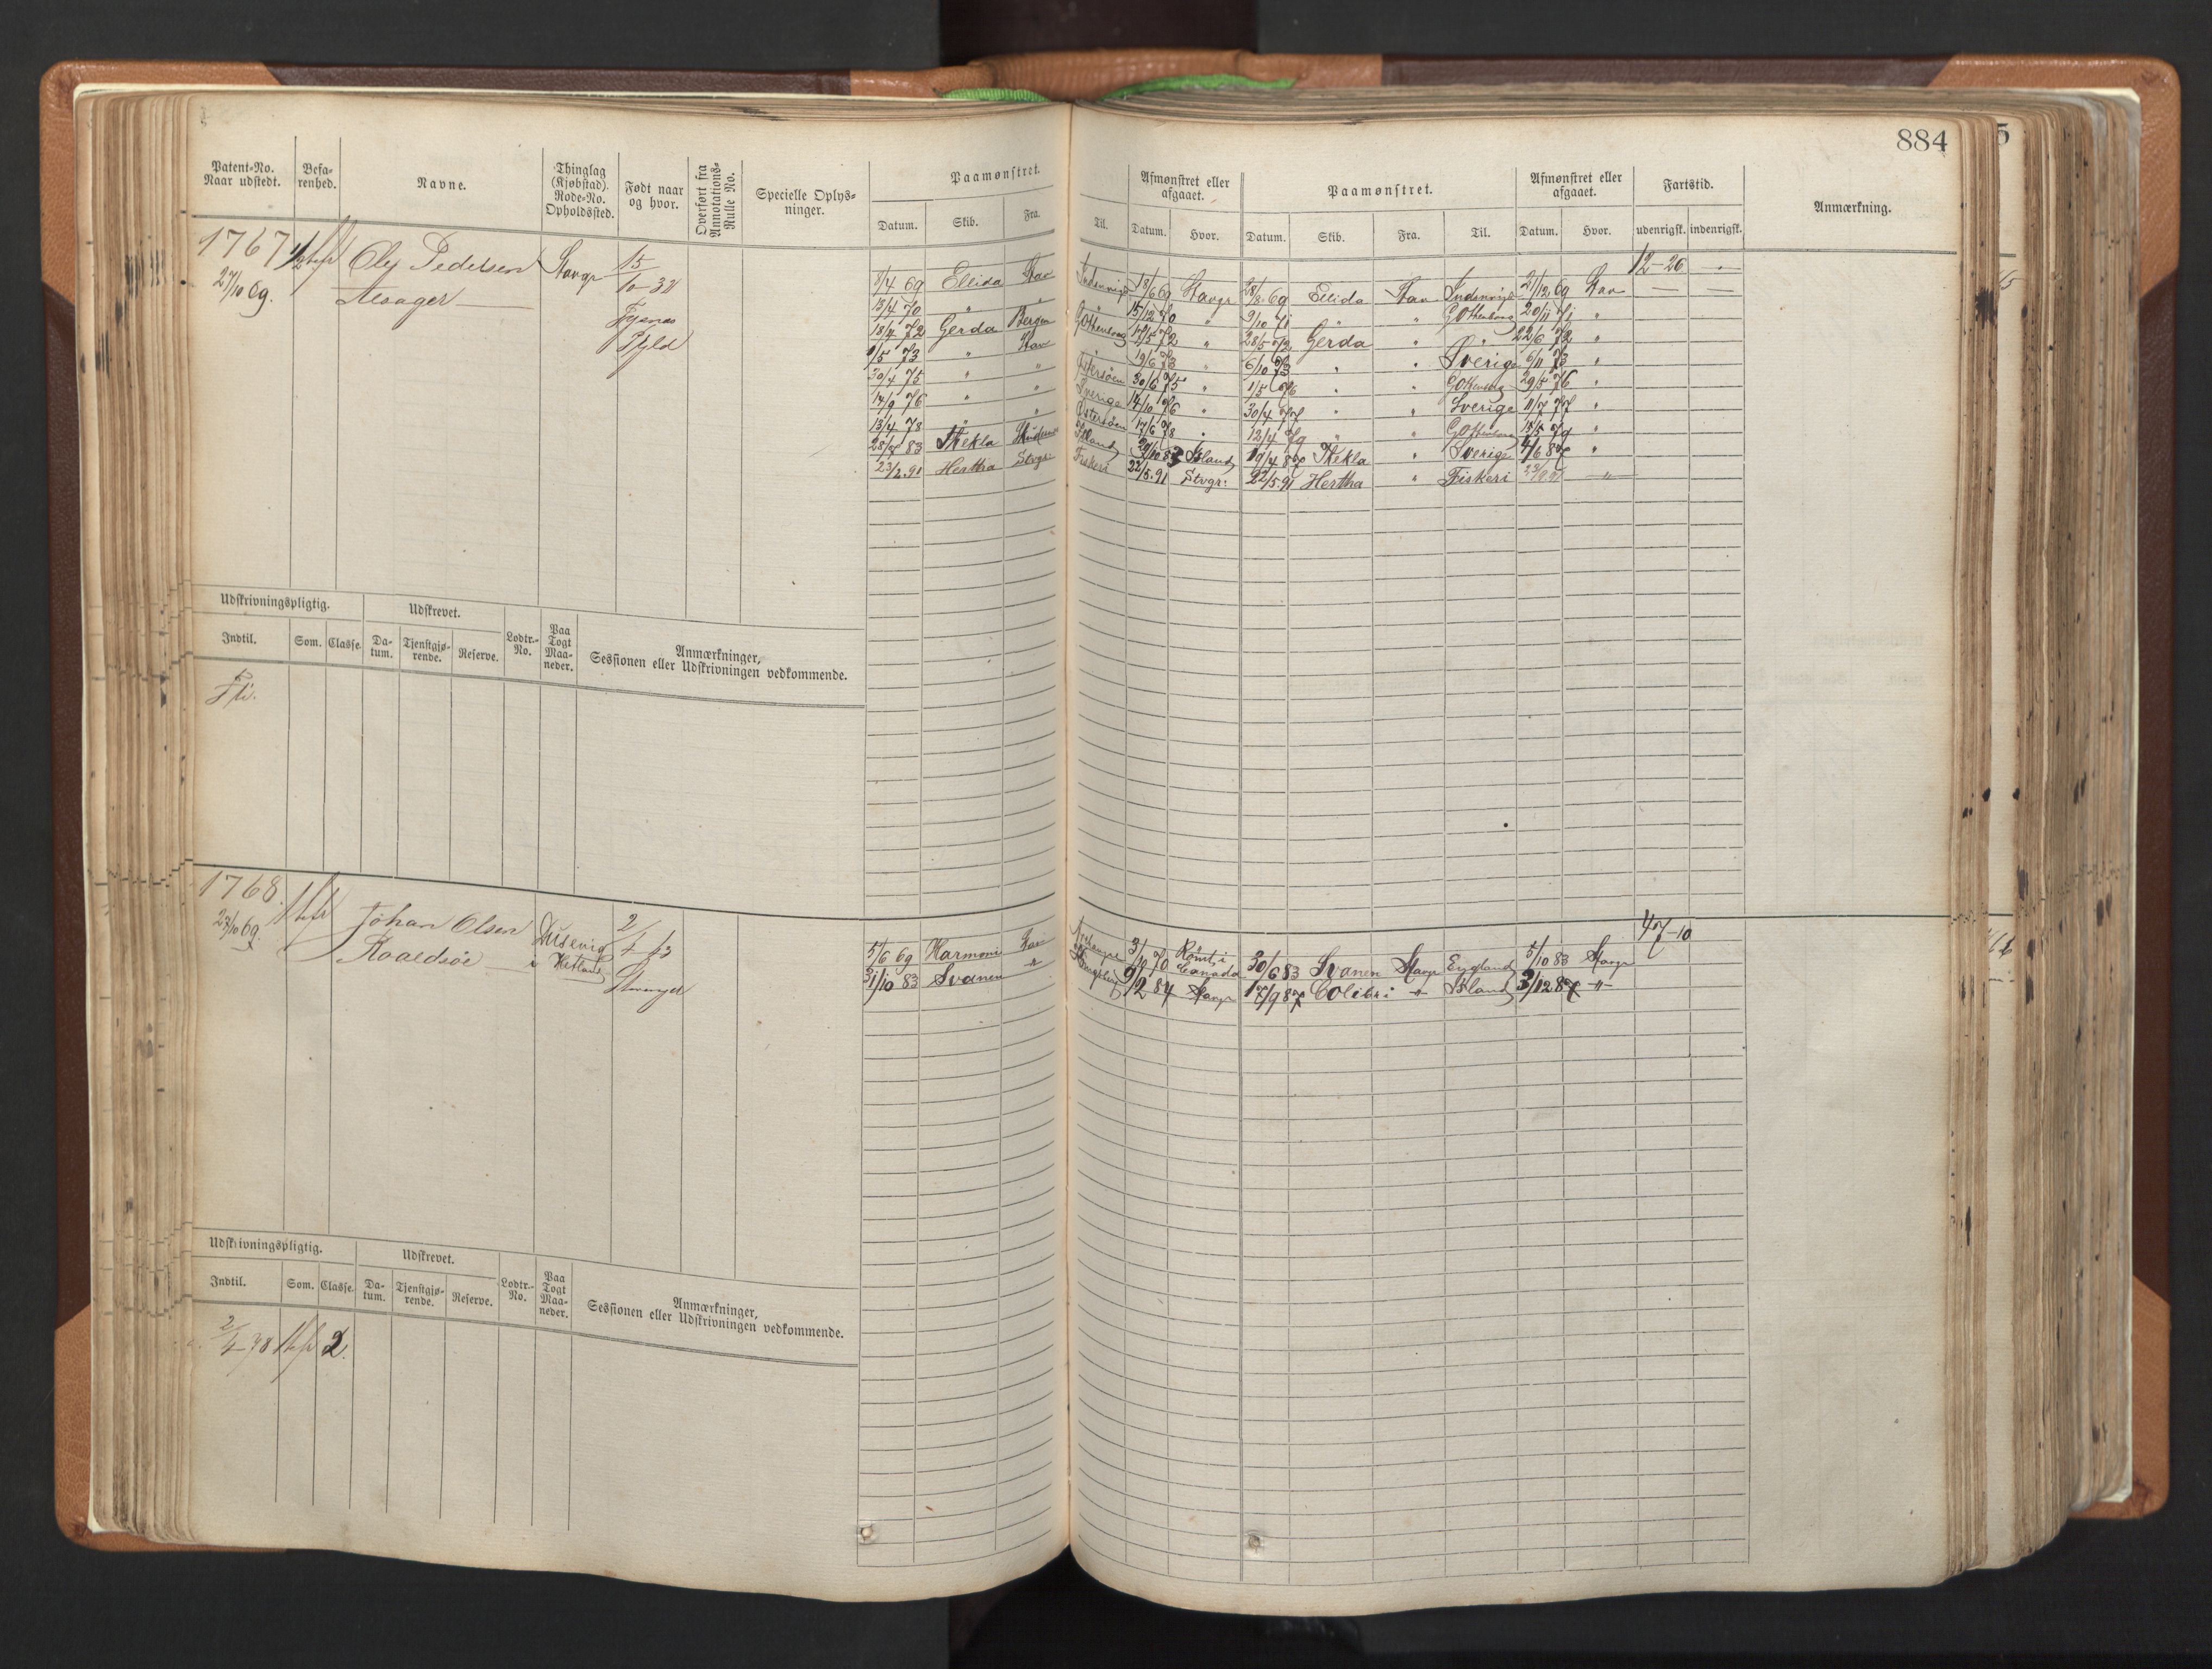 884
5
Patent-No. Naar udstedt.
Befa-renhed.
Navne.
Thinglag (Kjøbstad). Rode-No. Opholdssted.
Født naar og hvor.
Overført fra Annotations-Rulle No.
Specielle Oplys-ninger.
Paamønstret.
Datum. Skib. Fra. Til.
Afmønstret eller afgaaet.
Datum. Hvor.
Paamønstret.
Datum. Skib. Fra. Til.
Afmønstret eller afgaaet.
Datum. Hvor.
Fartstid.
udenrigsk. indenrigsk.
Anmærkning.
1767 Ole Pedersen Stavgr 15
27/10 69.
12-26
8/4 69 Ellida Stav Indenrigs 18/6 69 Stavgr 28/8 69 Ellida Stav Indenrigs 21/12 69 Stav
13/4 70 " " " 15/12 70 " 9/10 71 " " Gottenborg 20/11 71 "
18/4 72 Gerda Bergen Gottenborg 17/5 72 " 28/5 72 Gerda " " 22/6 72 "
1/5 73 " Stav " 19/6 73 " 6/10 73 " " Sverige 6/11 73 "
30/4 75 " " Østersøen 30/6 75 " 1/5 76 " " Gottenborg 29/5 76 "
14/9 76 " " Sverige 14/10 76 " 30/4 77 " " Sverige 11/7 77 "
13/4 78 " " Østersøen 17/6 78 " 12/4 79 " " Gottenborg 14/5 79 "
28/7 83 Thekla Island 29/10 83 Island 19/4 87 Thekla " Sverige 4/6 87 "
23/2.91 Hertha Stvgr: Fiskeri 22/5.91 Stvgr: 22/5.91 Hertha " Fiskeri "
Udskrivningspligtig.
Udskrevet.
Indtil. Som. Classe.
Da-tum. Tjenstgjø-rende. Reserve.
Lodtr.-No.
Paa Togt Maa-neder.
Anmærkninger, Sessionen eller Udskrivningen vedkommende.
1768. Johan Olsen 2/
27/10 69. Roaldsøe Hetland 4 53
Stavanger
47-10
5/6 69 Harmoni 3/10 70 Canada 30/6 83 Svanen Stavgr England 5/10 83 Stavgr
31/10 83 Svanen " 9/2 84 Stavgr 17/9 87 Colibri " Island 3/12 87 "
Udskrivningspligtig.
Udskrevet.
Indtil. Som. Classe.
Da-tum. Tjenstgjø-rende. Reserve.
Lodtr.-No.
Paa Togt Maa-neder.
Anmærkninger, Sessionen eller Udskrivningen vedkommende.
2/4-78 2.